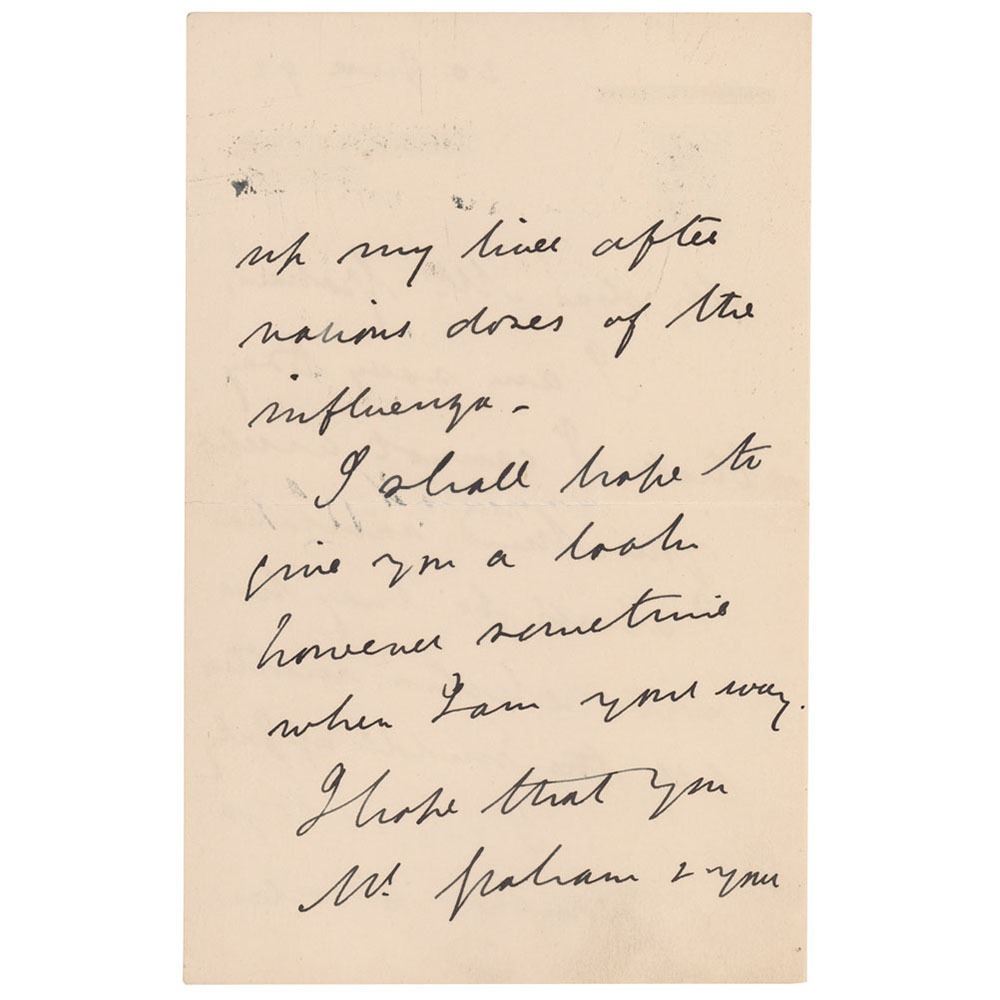 up my liver after
various doses of the
influenza -
I shall hope to
give you a look
however sometime
when I am your way.
I hope that you
Mr. Graham & your